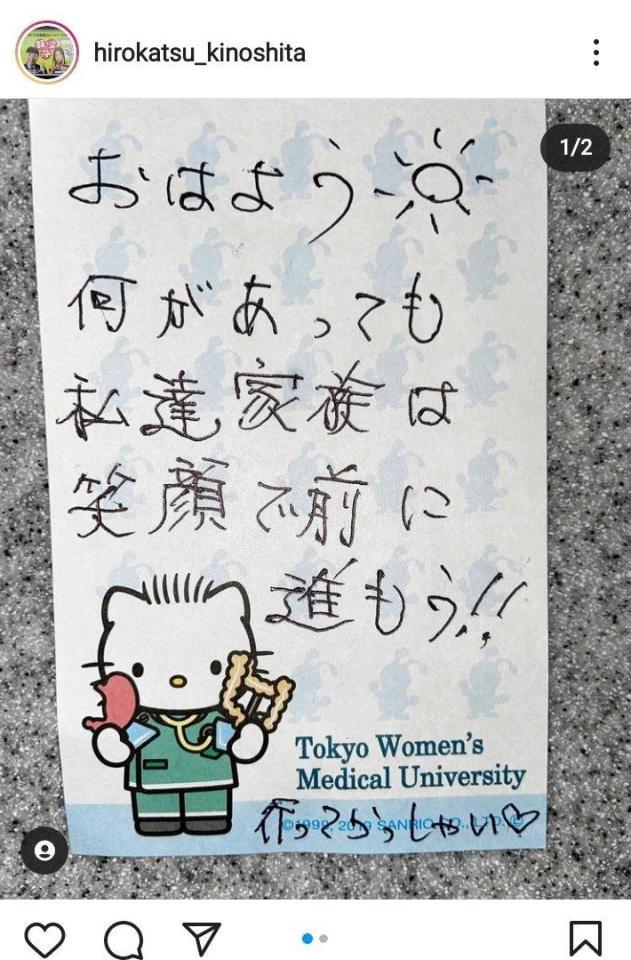 hirokatsu_kinoshita
1/2
おはよう
何があっても
私達家族は
笑顔で前に
進もう!!
Tokyo Women's
Medical University
行ってらっしゃい♡
SANRIO CO., LTD.